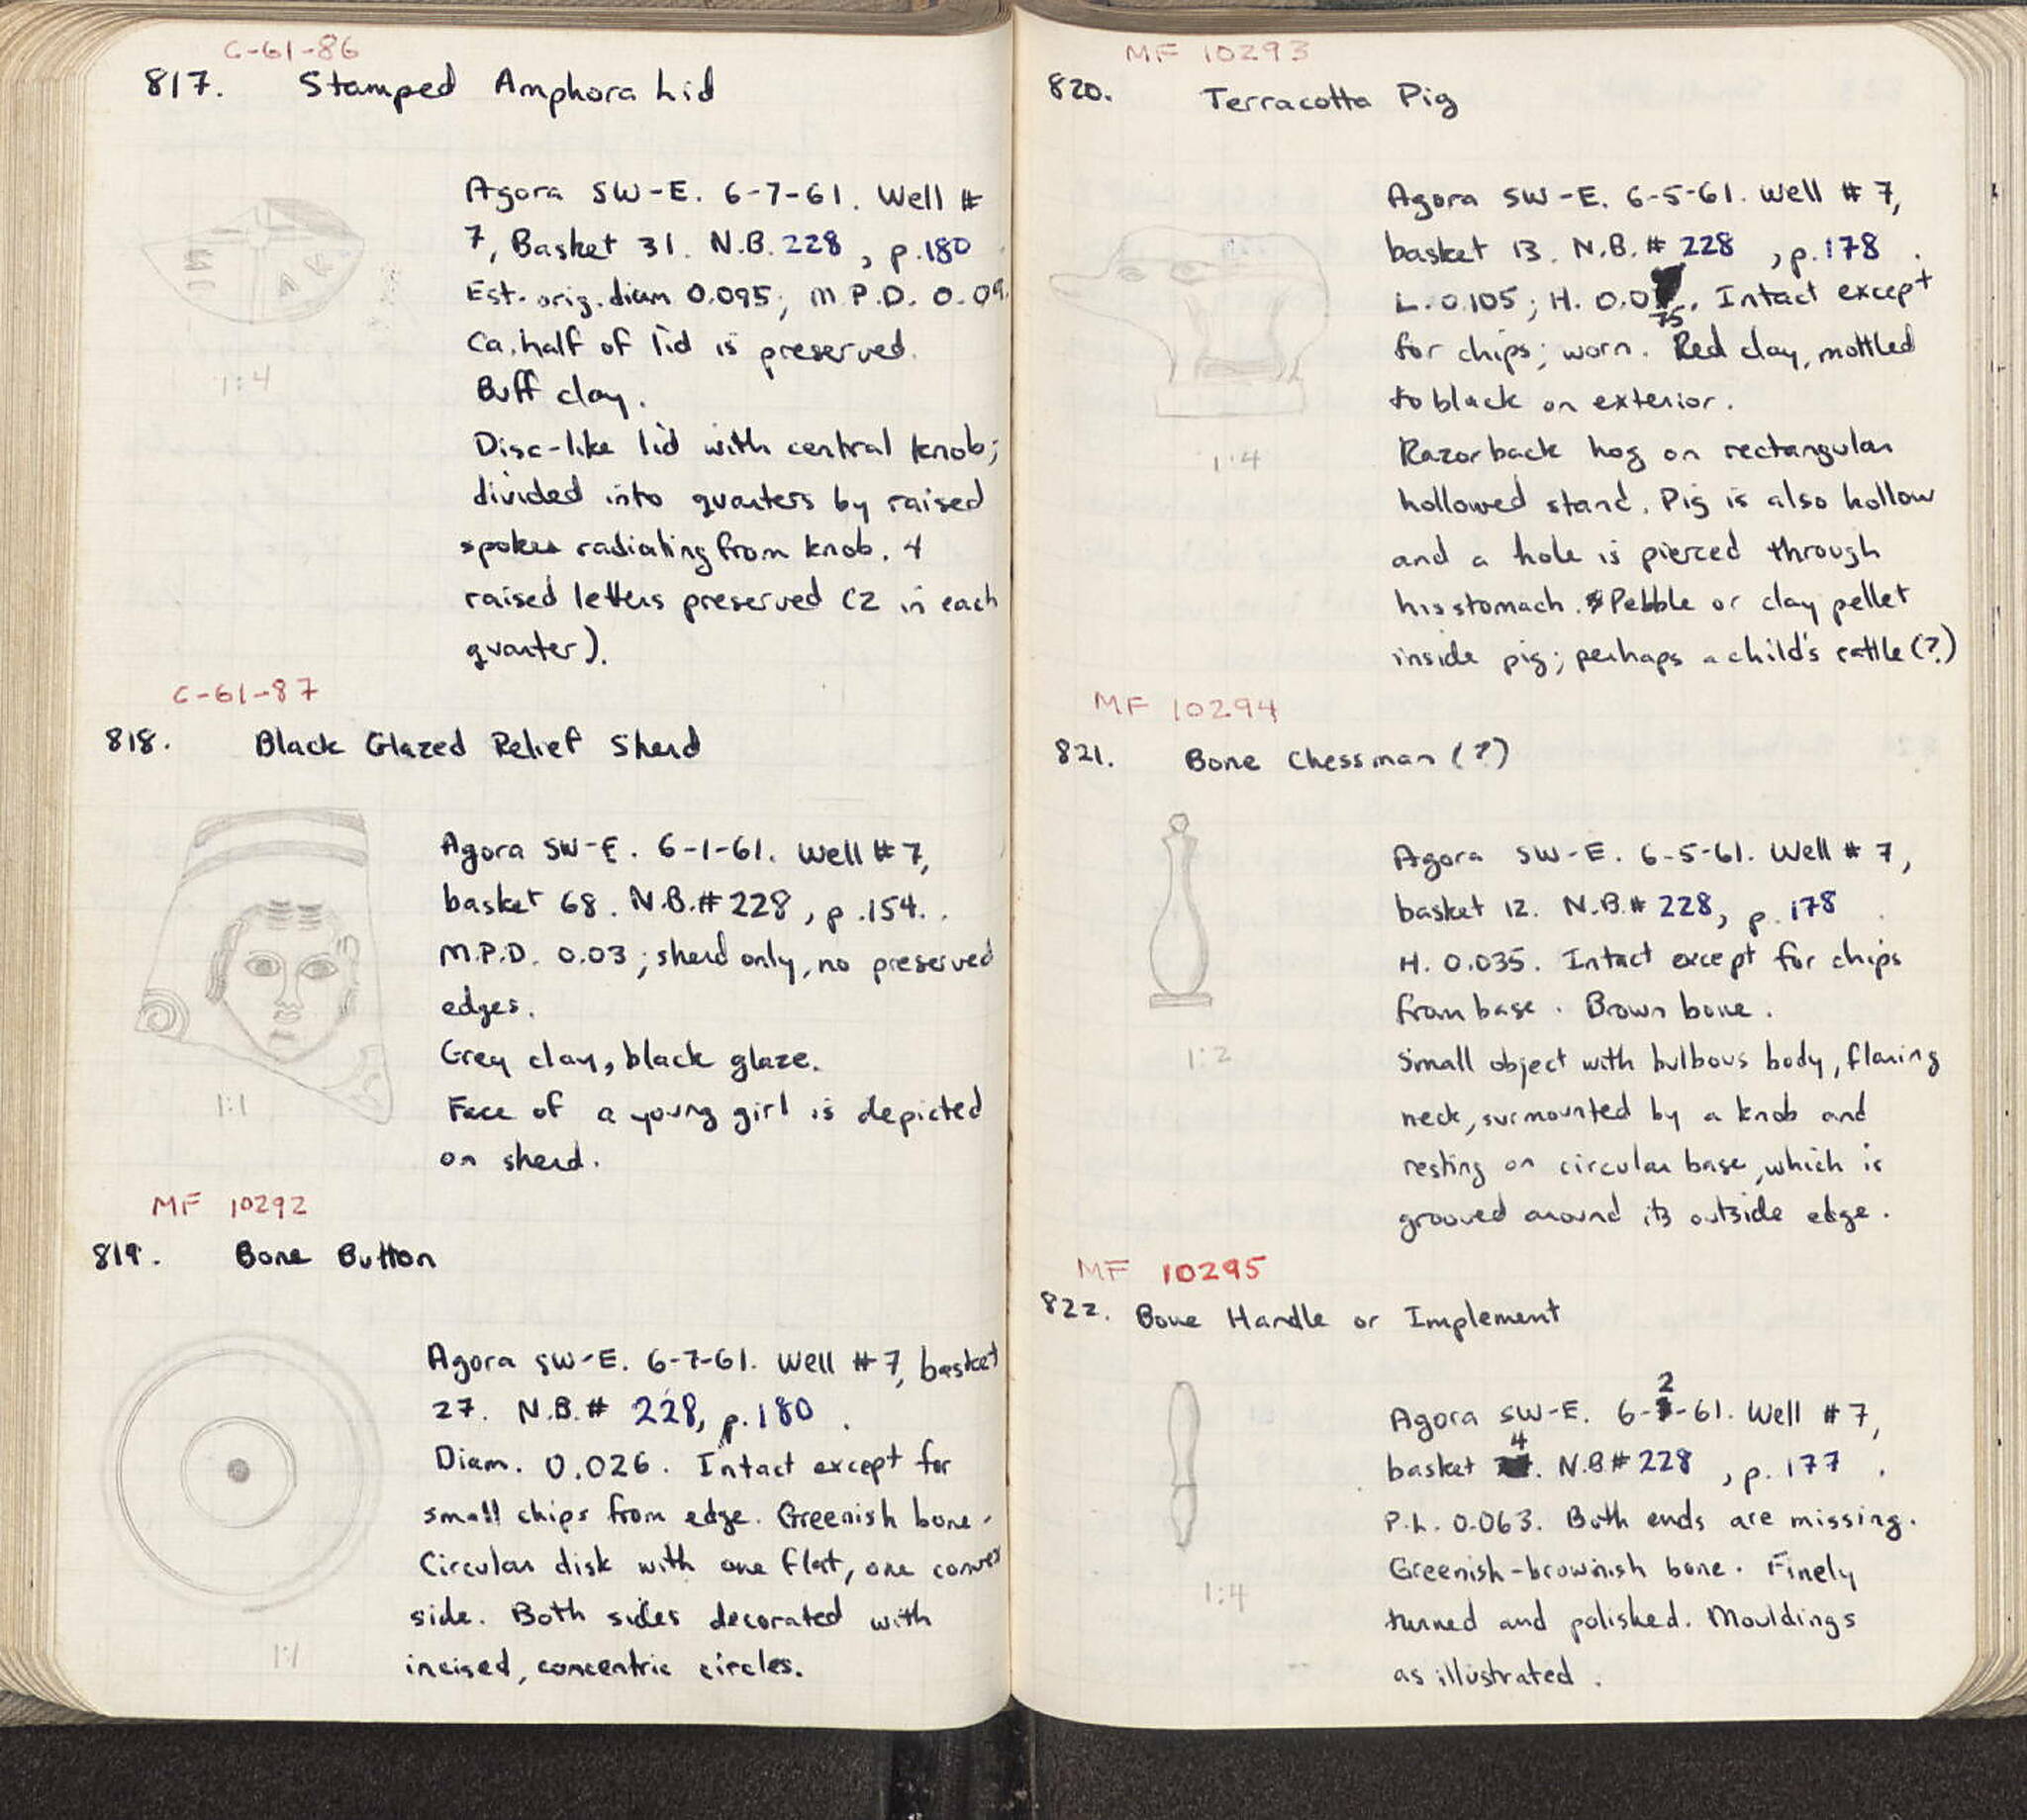 C-61-86
817. Stamped Amphora Lid
Agora SW-E. 6-7-61. Well #
7, Basket 31. N.B. 228, p.180
Est. orig. diam 0.095; M.P.D. 0.09.
Ca. half of lid is preserved.
Buff clay.
1:4
Disc-like lid with central knob;
divided into quarters by raised
spokes radiating from knob. 4
raised letters preserved (2 in each
quarter).
C-61-87
818. Black Glazed Relief Sherd
Agora SW-E. 6-1-61. Well #7,
basket 68. N.B.# 228, p.154.
M.P.D. 0.03; sherd only, no preserved
edges.
Grey clay, black glaze.
Face of a young girl is depicted
on sherd.
1:1
MF 10292
819. Bone Button
Agora SW-E. 6-7-61. Well #7, basket
27. N.B.# 228, p.180.
Diam. 0.026. Intact except for
small chips from edge. Greenish bone.
Circular disk with one flat, one convex
side. Both sides decorated with
incised, concentric circles.
1:1
MF 10293
820. Terracotta Pig
Agora SW-E. 6-5-61. Well #7,
basket 13. N.B.# 228, p.178.
L. 0.105; H. 0.075. Intact except
for chips; worn. Red clay, mottled
to black on exterior.
1:4
Razorback hog on rectangular
hollowed stand. Pig is also hollow
and a hole is pierced through
his stomach. Pebble or clay pellet
inside pig; perhaps a child's rattle (?)
MF 10294
821. Bone Chessman (?)
Agora SW-E. 6-5-61. Well #7,
basket 12. N.B.# 228, p.178.
H. 0.035. Intact except for chips
from base. Brown bone.
1:2
Small object with bulbous body, flaring
neck, surmounted by a knob and
resting on circular base, which is
grooved around its outside edge.
MF 10295
822. Bone Handle or Implement
Agora SW-E. 6-2-61. Well #7,
basket 4. N.B# 228, p.177.
P.L. 0.063. Both ends are missing.
Greenish-brownish bone. Finely
turned and polished. Mouldings
as illustrated.
1:4